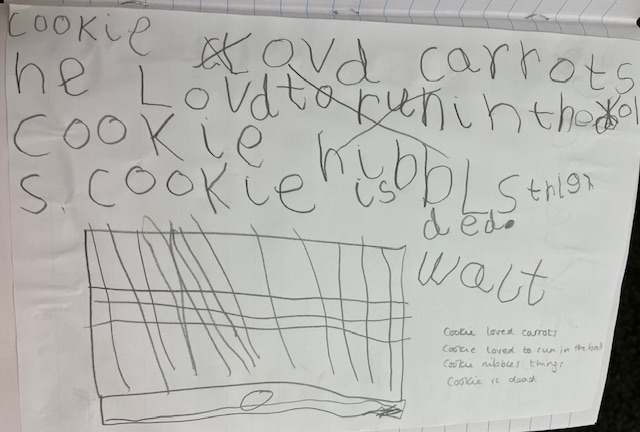 cookie Lovd carrots
he Lovd to run in the bol
cookie nibbLs thigs
s. cookie is ded.
walt
Cookie loved carrots
Cookie loved to run in the ball
Cookie nibbles things
Cookie is dead